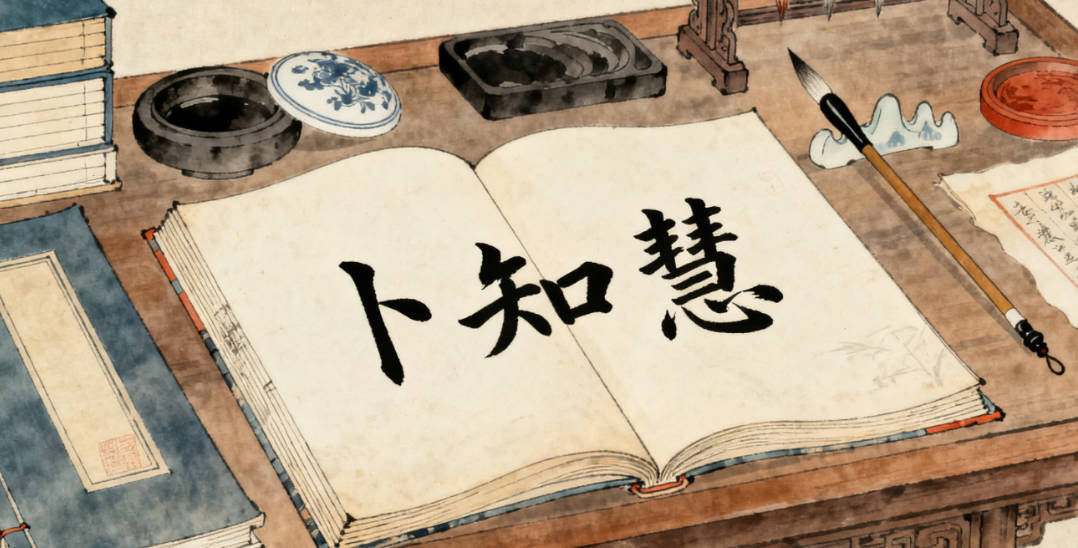 卜知慧